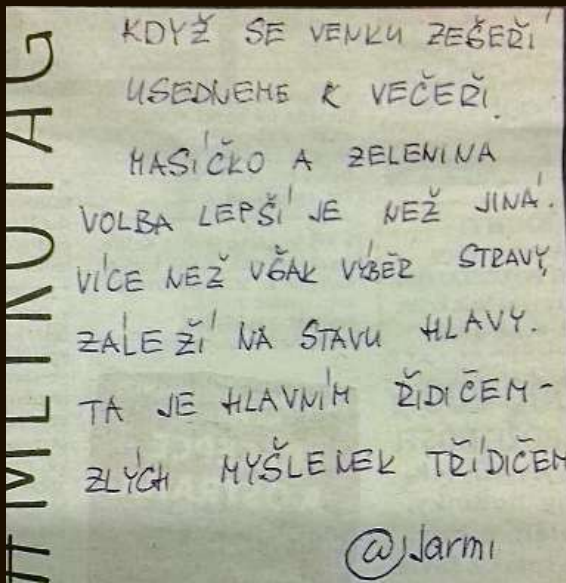 KDYŽ SE VENKU ZEŠEŘÍ
USEDNEME K VEČEŘI.
MASÍČKO A ZELENINA
VOLBA LEPŠÍ JE NEŽ JINÁ.
VÍCE NEŽ VŠAK VÝBĚR STRAVY,
ZÁLEŽÍ NA STAVU HLAVY.
TA JE HLAVNÍM ŘIDIČEM -
ZLÝCH MYŠLENEK TŘÍDIČEM
@Jarmi
#METROTAG